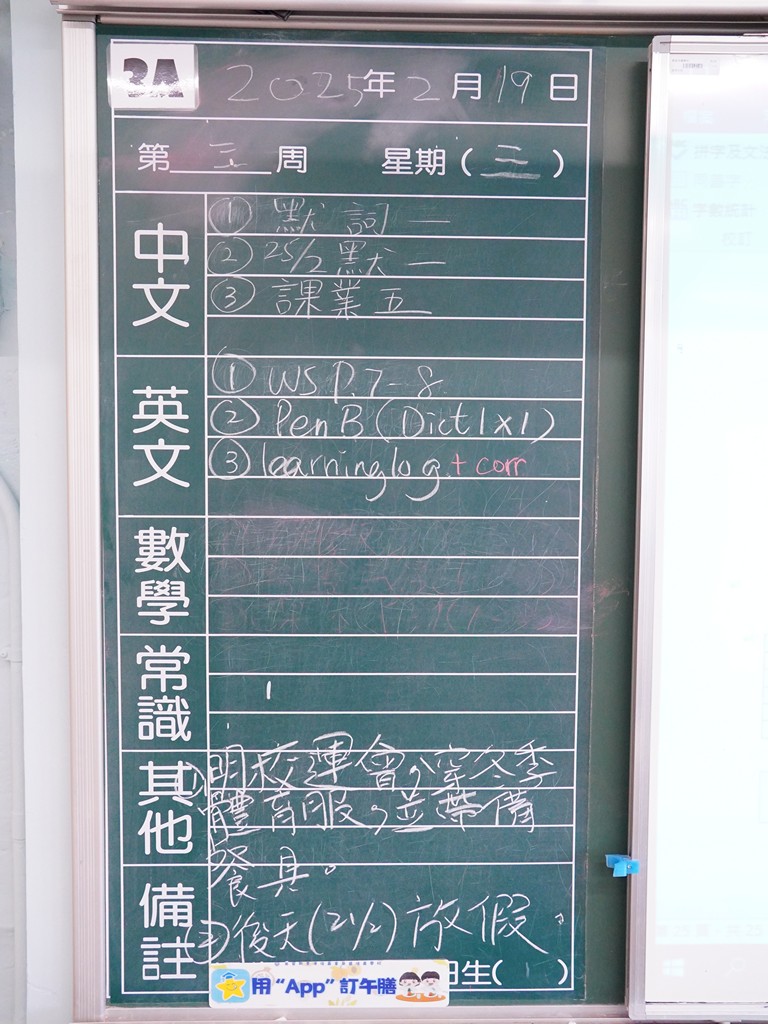 3A 2025年2月19日
第三周 星期(三)
中文
① 默詞一
② 25/2默一
③ 課業五
英文
① WS P.7-8
② Pen B (Dict 1 x 1)
③ learning log + corr
數學
常識
其他
①明校運會,穿冬季
體育服,並帶備
餐具。
備註
②後天(21/2)放假。
用"App"訂午膳
日生( )